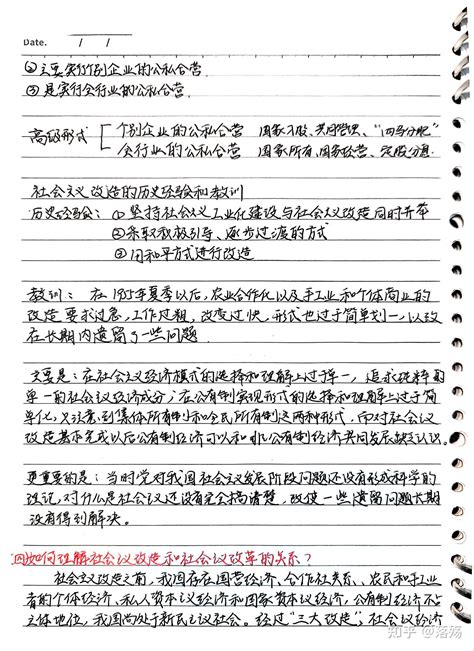 Date. / /
②主要实行个别企业的公私合营.
③是实行全行业的公私合营.
高级形式 [ 个别企业的公私合营 国家入股、共同管理、“四马分肥”
全行业的公私合营 国家所有、国家经营、定股分息.
社会主义改造的历史经验和教训
历史经验: ①坚持社会主义工业化建设与社会主义改造同时并举
②采取积极引导、逐步过渡的方式
③用和平方式进行改造
教训: 在1955年夏季以后,农业合作化以及手工业和个体商业的
改造要求过急,工作过粗,改变过快,形式也过于简单划一,以致
在长期内遗留了一些问题.
主要是:在社会主义经济模式的选择和理解上过于单一,追求纯粹的
单一的社会主义经济成分;在公有制实现形式的选择和理解上过于简
单化,只注意到集体所有制和全民所有制这两种形式,而对社会主义
改造基本完成以后公有制经济可以和非公有制经济共同发展缺乏认识.
更重要的是:当时党对我国社会主义发展阶段问题还没有形成科学的
理论,对什么是社会主义还没有完全搞清楚,致使一些遗留问题长期
没有得到解决。
四如何理解社会主义改造和社会主义改革的关系?
社会主义改造之前,我国存在国营经济、合作社
者的个体经济、私人资本主义经济和国家资本主义经济,公有制经济不占
主体地位,我国尚处于新民主主义社会。经过“三大改造”,社会主义经济
知乎 @落殇